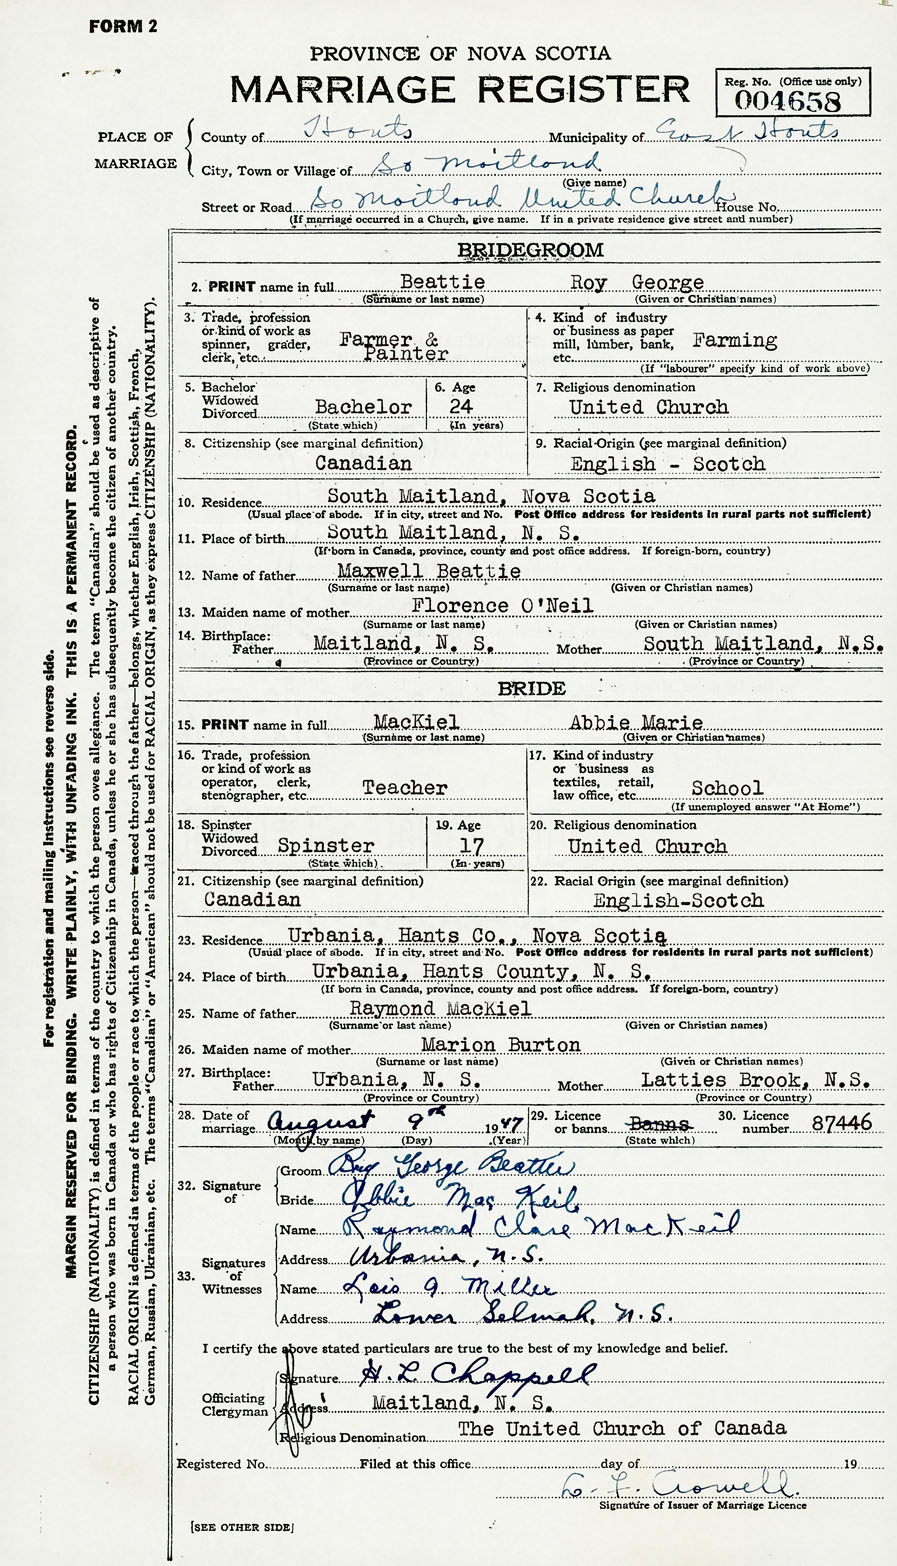 FORM 2
PROVINCE OF NOVA SCOTIA
MARRIAGE REGISTER
Reg. No. (Office use only)
004658
PLACE OF MARRIAGE
County of Hants Municipality of East Hants
City, Town or Village of So Maitland
(Give name)
Street or Road So Maitland United Church House No.
(If marriage occurred in a Church, give name. If in a private residence give street and number)
BRIDEGROOM
2. PRINT name in full Beattie Roy George
(Surname or last name) (Given or Christian names)
3. Trade, profession or kind of work as spinner, grader, clerk, etc. Farmer & Painter
4. Kind of industry or business as paper mill, lumber, bank, etc. Farming
(If "labourer" specify kind of work above)
5. Bachelor Widowed Divorced Bachelor
(State which)
6. Age 24
(In years)
7. Religious denomination
United Church
8. Citizenship (see marginal definition)
Canadian
9. Racial Origin (see marginal definition)
English - Scotch
10. Residence South Maitland, Nova Scotia
(Usual place of abode. If in city, street and No. Post Office address for residents in rural parts not sufficient)
11. Place of birth South Maitland, N. S.
(If born in Canada, province, county and post office address. If foreign-born, country)
12. Name of father Maxwell Beattie
(Surname or last name) (Given or Christian names)
13. Maiden name of mother Florence O'Neil
(Surname or last name) (Given or Christian names)
14. Birthplace: Father Maitland, N. S. Mother South Maitland, N.S.
(Province or Country) (Province or Country)
BRIDE
15. PRINT name in full MacKiel Abbie Marie
(Surname or last name) (Given or Christian names)
16. Trade, profession or kind of work as operator, clerk, stenographer, etc. Teacher
17. Kind of industry or business as textiles, retail, law office, etc. School
(If unemployed answer "At Home")
18. Spinster Widowed Divorced Spinster
(State which)
19. Age 17
(In years)
20. Religious denomination
United Church
21. Citizenship (see marginal definition)
Canadian
22. Racial Origin (see marginal definition)
English-Scotch
23. Residence Urbania, Hants Co., Nova Scotia
(Usual place of abode. If in city, street and No. Post Office address for residents in rural parts not sufficient)
24. Place of birth Urbania, Hants County, N. S.
(If born in Canada, province, county and post office address. If foreign-born, country)
25. Name of father Raymond MacKiel
(Surname or last name) (Given or Christian names)
26. Maiden name of mother Marion Burton
(Surname or last name) (Given or Christian names)
27. Birthplace: Father Urbania, N. S. Mother Latties Brook, N.S.
(Province or Country) (Province or Country)
28. Date of marriage August 9th 1947
(Month by name) (Day) (Year)
29. Licence or banns Banns
(State which)
30. Licence number 87446
32. Signature of
Groom Roy George Beattie
Bride Abbie Mac Keil
33. Signatures of Witnesses
Name Raymond Clare MacKeil
Address Urbania, N.S.
Name Lois A Miller
Address Lower Selmah, N.S.
I certify the above stated particulars are true to the best of my knowledge and belief.
Officiating Clergyman
Signature H. L. Chappell
Address Maitland, N. S.
Religious Denomination The United Church of Canada
Registered No. Filed at this office day of 19
Crowell.
Signature of Issuer of Marriage Licence
[SEE OTHER SIDE]
For registration and mailing instructions see reverse side.
MARGIN RESERVED FOR BINDING. WRITE PLAINLY, WITH UNFADING INK. THIS IS A PERMANENT RECORD.
CITIZENSHIP (NATIONALITY) is defined in terms of the country to which the person owes allegiance. The term "Canadian" should be used as descriptive of
a person who was born in Canada or who has rights of Citizenship in Canada, unless he or she has subsequently become the citizen of another country.
RACIAL ORIGIN is defined in terms of the people or race to which the person—traced through the father—belongs, whether English, Irish, Scottish, French,
German, Russian, Ukrainian, etc. The terms "Canadian" or "American" should not be used for RACIAL ORIGIN, as they express CITIZENSHIP (NATIONALITY).